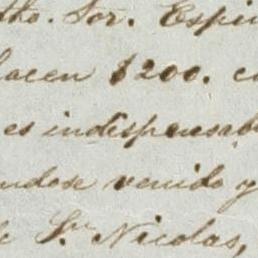 dho. Sor. Espi
hacen $200. c
es indispensab
ndose venido y
de Sn. Nicolas,